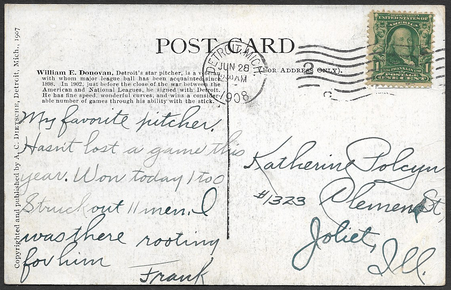 POST CARD
William E. Donovan, Detroit's star pitcher, is a veteran,
with whom major league ball has been acquainted since
1898. In 1902, just before the close of the war between the
American and National Leagues, he signed with Detroit.
He has fine speed, wonderful curves, and wins a consider-
able number of games through his ability with the stick.
(FOR ADDRESS ONLY).
DETROIT, MICH.
JUN 28
AM
1908
2
Copyrighted and published by A. C. Dietsche, Detroit, Mich., 1907
My favorite pitcher.
Hasn't lost a game this
year. Won today 1 to 0
Struck out 11 men. I
was there rooting
for him
Frank
Katherine Polcyn
#1323 Clement St,
Joliet,
Ill.